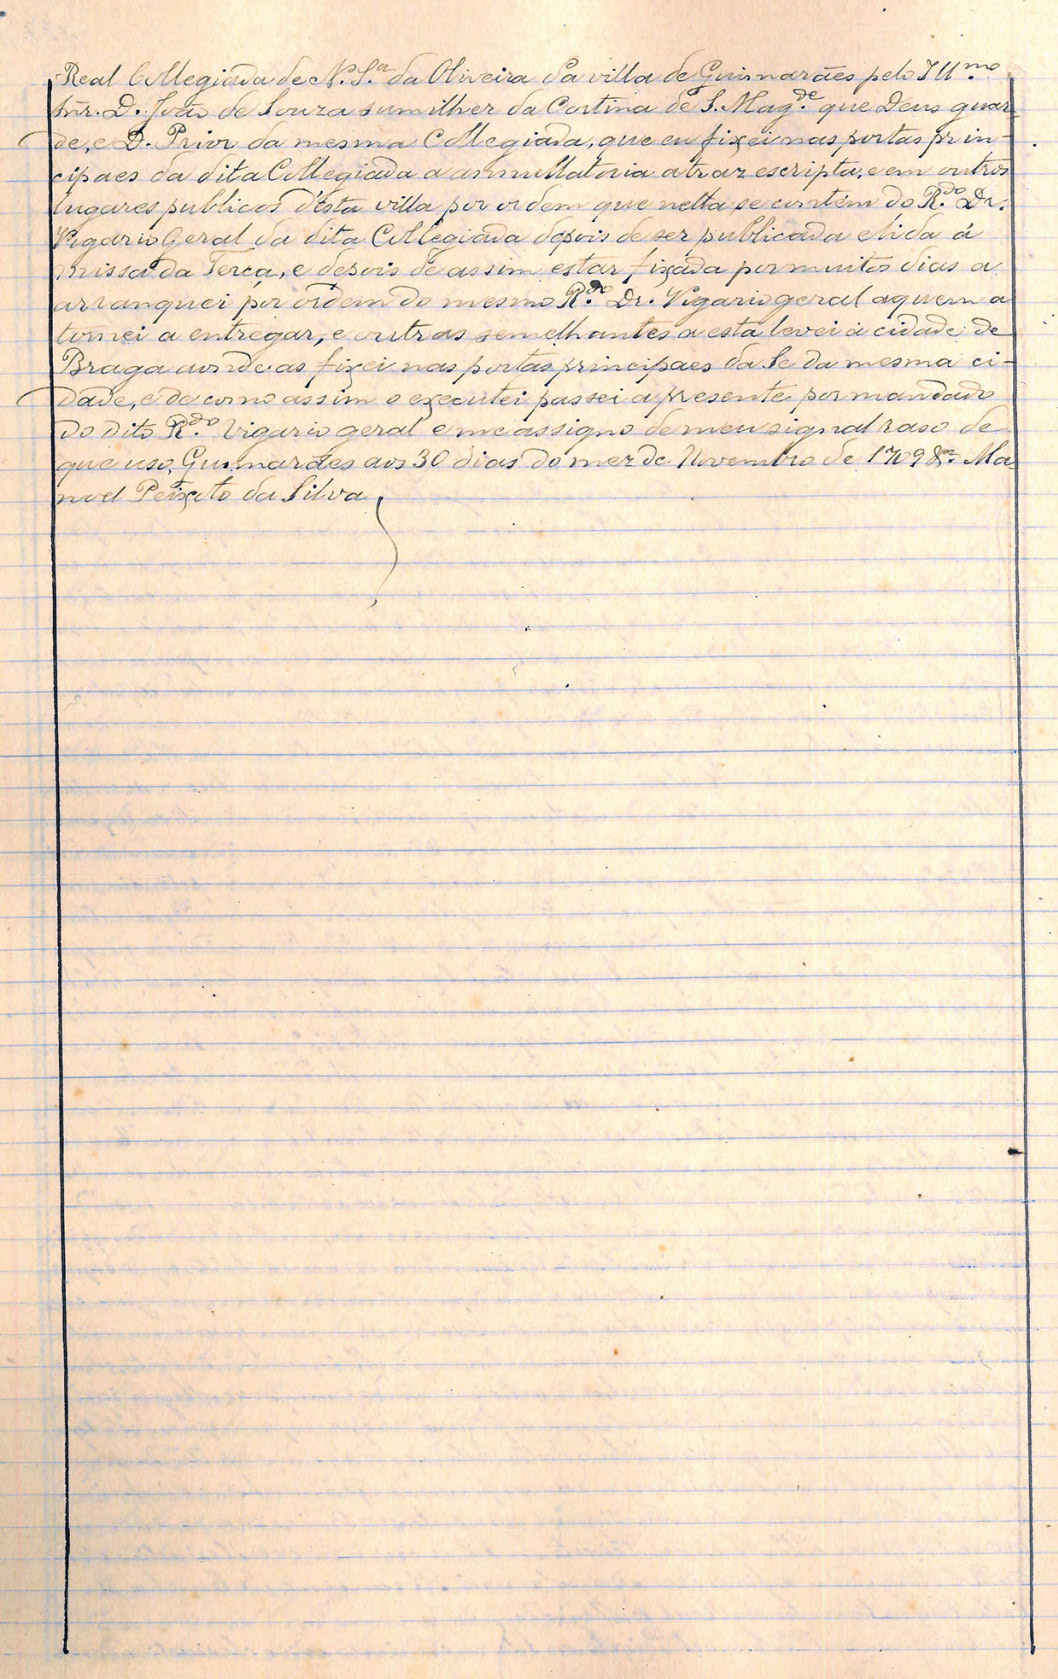 Real Collegiada de N. S.ra da Oliveira da villa de Guimarães pelo Ill.mo
Snr. D. João de Souza sumilher da Cortina de S. Mag.de que Deus guar-
de, e D. Prior da mesma Collegiada, que eu fixei nas portas prin-
cipaes da dita Collegiada a annullatoria atraz escripta, e em outros
lugares publicos d'esta villa por ordem que nella se contém do R.do Dr.
Vigario Geral da dita Collegiada depois de ser publicada e lida á
missa da Terça, e depois de assim estar fixada por muitos dias a
arranquei por ordem do mesmo R.do Dr. Vigario geral a quem a
tornei a entregar, e outras semelhantes a esta levei á cidade de
Braga aonde as fixei nas portas principaes da Sé da mesma ci-
dade, e de como assim o executei passei a presente por mandado
do dito R.do Vigario geral e me assigno de meu signal raso de
que uso, Guimarães aos 30 dias do mez de Novembro de 1709 Ma-
noel Peixoto da Silva